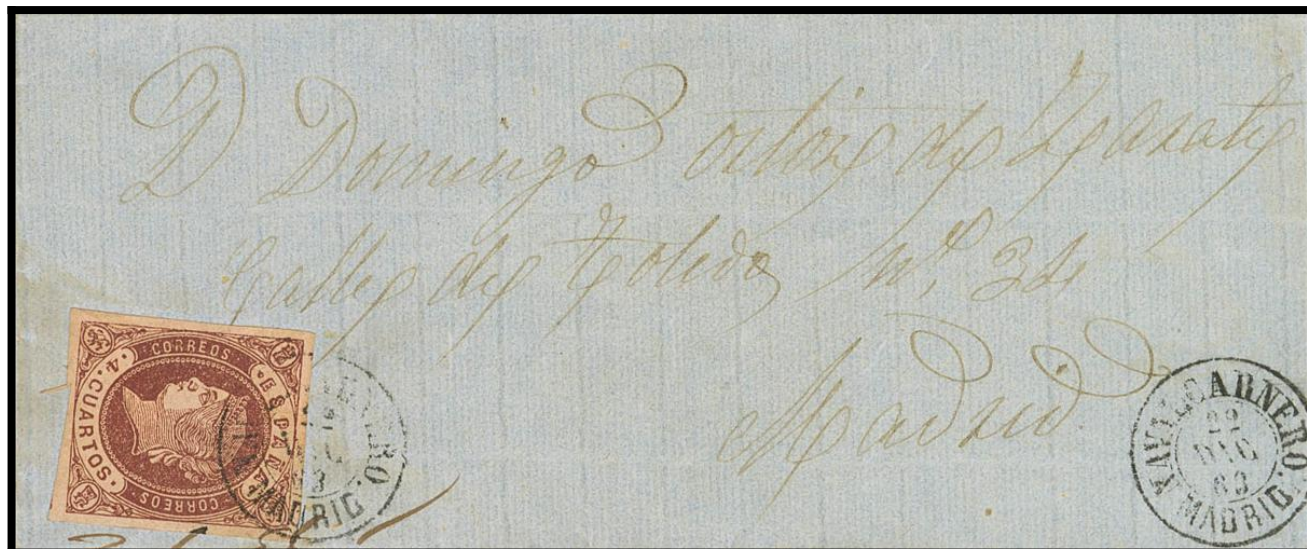 D Domingo Ortiz de Zarate
Calle de Toledo nº 34
Madrid
CORREOS
ESPAÑA
4 CUARTOS
CORREOS
MADRID
NAVALCARNERO.
22
DIC
63
MADRID.